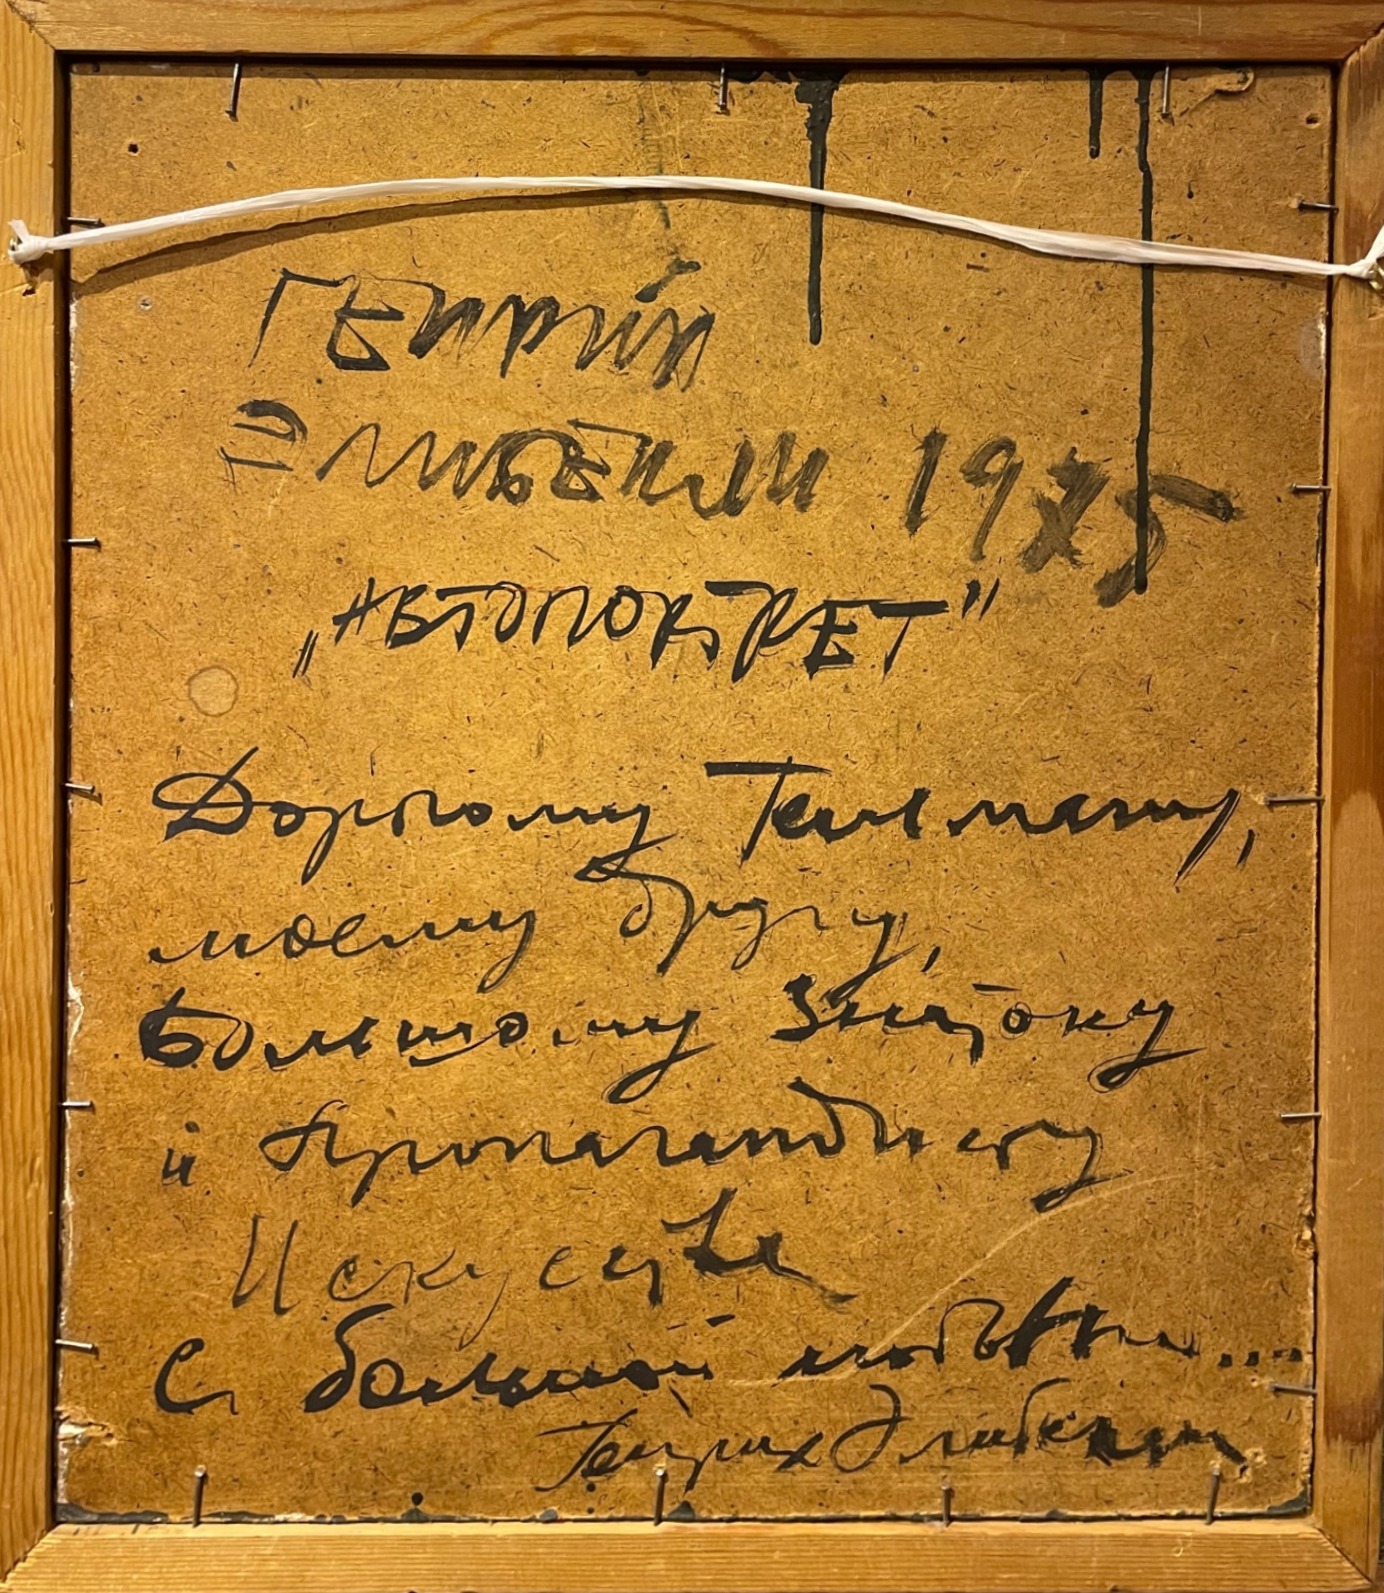 Генрих
Элинсон 1975
„АВТОПОРТРЕТ"
Дорогому Тельману,
моему другу,
большому знатоку
и пропагандисту
Искусства
С большой любовью....
Генрих